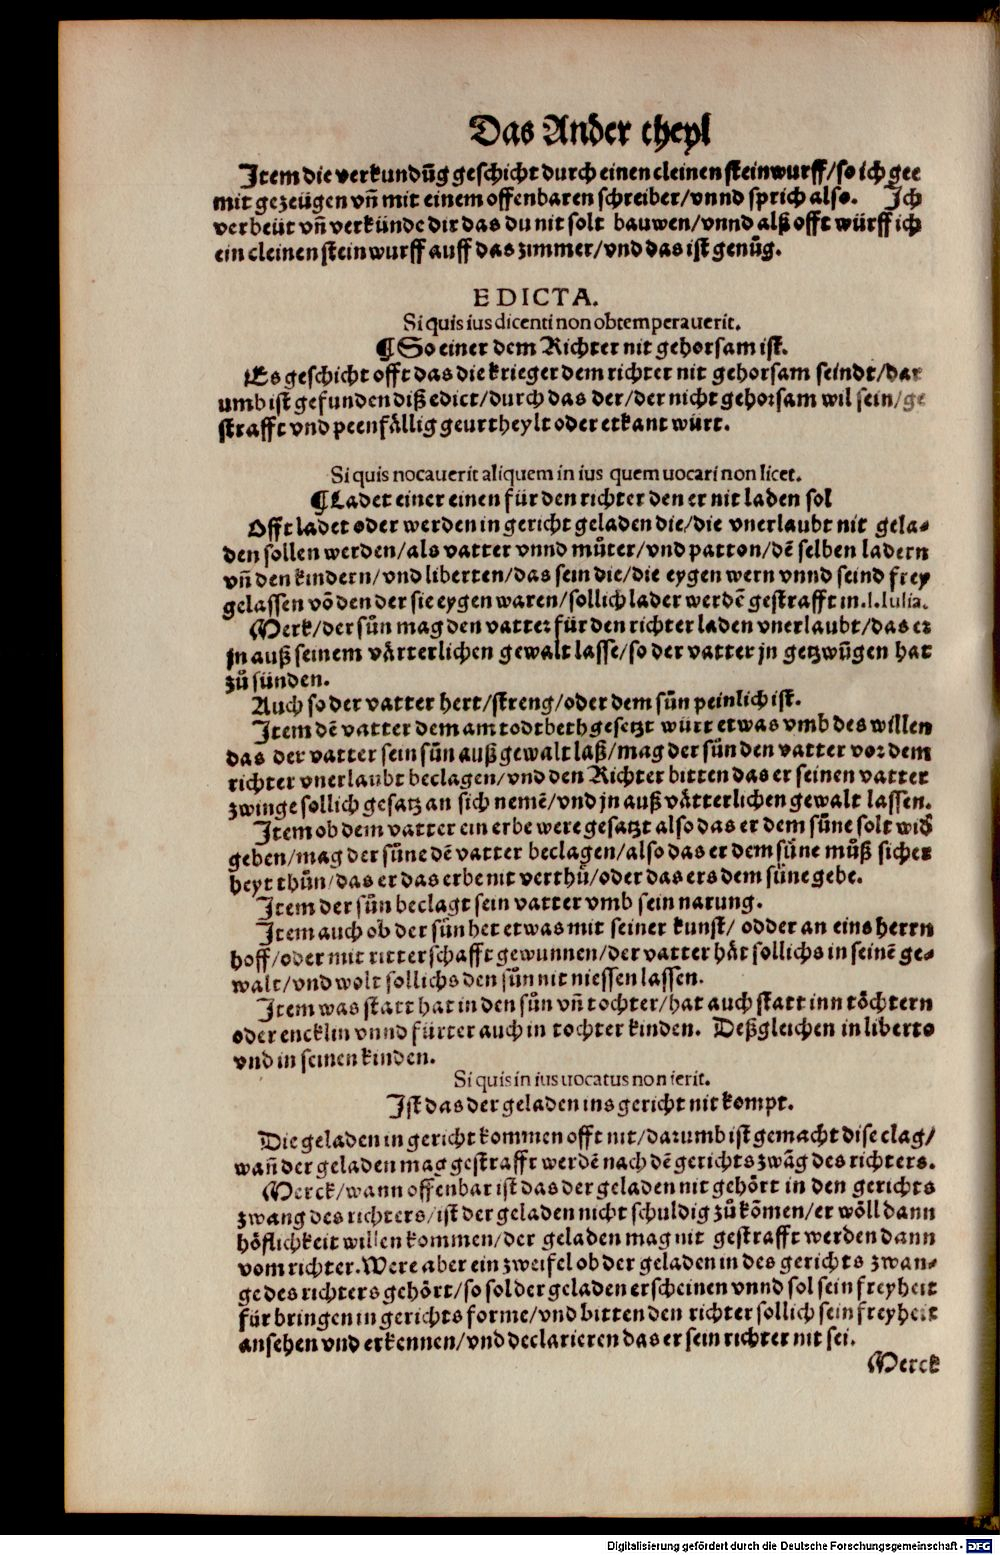 Das Ander theyl
Item die verkundūg geschicht durch einen cleinen steinwurff/so ich gee
mit gezeügen vn̄ mit einem offenbaren schreiber/vnnd sprich also. Ich
verbeüt vn̄ verkünde dir das du nit solt bauwen/vnnd alß offt würff ich
ein cleinen steinwurff auff das zimmer/vnd das ist genůg.
EDICTA.
Si quis ius dicenti non obtemperauerit.
¶ So einer dem Richter nit gehorsam ist.
Es geschicht offt das die krieger dem richter nit gehorsam seindt/dar
umb ist gefunden diß edict/durch das der/der nicht gehorsam wil sein/ge
strafft vnd peenfällig geurtheylt oder erkant würt.
Si quis uocauerit aliquem in ius quem uocari non licet.
¶ Ladet einer einen für den richter den er nit laden sol
Offt ladet oder werden in gericht geladen die/die vnerlaubt nit gela-
den sollen werden/als vatter vnnd můter/vnd patron/dē selben ladern
vn̄ den kindern/vnd liberten/das sein die/die eygen wern vnnd seind frey
gelassen vō den der sie eygen waren/sollich lader werdē gestrafft in.l.Iulia.
Merk/der sůn mag den vatter für den richter laden vnerlaubt/das er
jn auß seinem värterlichen gewalt lasse/so der vatter jn getzwūgen hat
zů sünden.
Auch so der vatter hert/streng/oder dem sůn peinlich ist.
Item dē vatter dem am todtbeth gesetzt würt etwas vmb des willen
das der vatter sein sůn auß gewalt laß/mag der sůn den vatter vor dem
richter vnerlaubt beclagen/vnd den Richter bitten das er seinen vatter
zwinge sollich gesatz an sich nemē/vnd jn auß vätterlichen gewalt lassen.
Item ob dem vatter ein erbe were gesatzt also das er dem sůne solt wid̄
geben/mag der sůne dē vatter beclagen/also das er dem sůne můß sicher
heyt thůn/das er das erbe nit verthů/oder das ers dem sůne gebe.
Item der sůn beclagt sein vatter vmb sein narung.
Item auch ob der sůn het etwas mit seiner kunst/ odder an eins herrn
hoff/oder mit ritterschafft gewunnen/der vatter hät sollichs in seinē ge-
walt/vnd wolt sollichs den sůn nit niessen lassen.
Item was statt hat in den sůn vn̄ tochter/hat auch statt inn töchtern
oder encklin vnnd fürter auch in tochter kinden. Deßgleichen in liberto
vnd in seinen kinden.
Si quis in ius uocatus non ierit.
Ist das der geladen ins gericht nit kompt.
Die geladen in gericht kommen offt nit/darumb ist gemacht dise clag/
wan̄ der geladen mag gestrafft werdē nach dē gerichts zwāg des richters.
Merck/wann offenbar ist das der geladen nit gehört in den gerichts
zwang des richters/ist der geladen nicht schuldig zů kōmen/er wöll dann
höflichkeit willen kommen/der geladen mag nit gestrafft werden dann
vom richter.Were aber ein zweifel ob der geladen in des gerichts zwan-
ge des richters gehört/so sol der geladen erscheinen vnnd sol sein freyheit
für bringen in gerichts forme/vnd bitten den richter sollich sein freyheit
ansehen vnd erkennen/vnd declarieren das er sein richter nit sei.
Merck
Digitalisierung gefördert durch die Deutsche Forschungsgemeinschaft - DFG